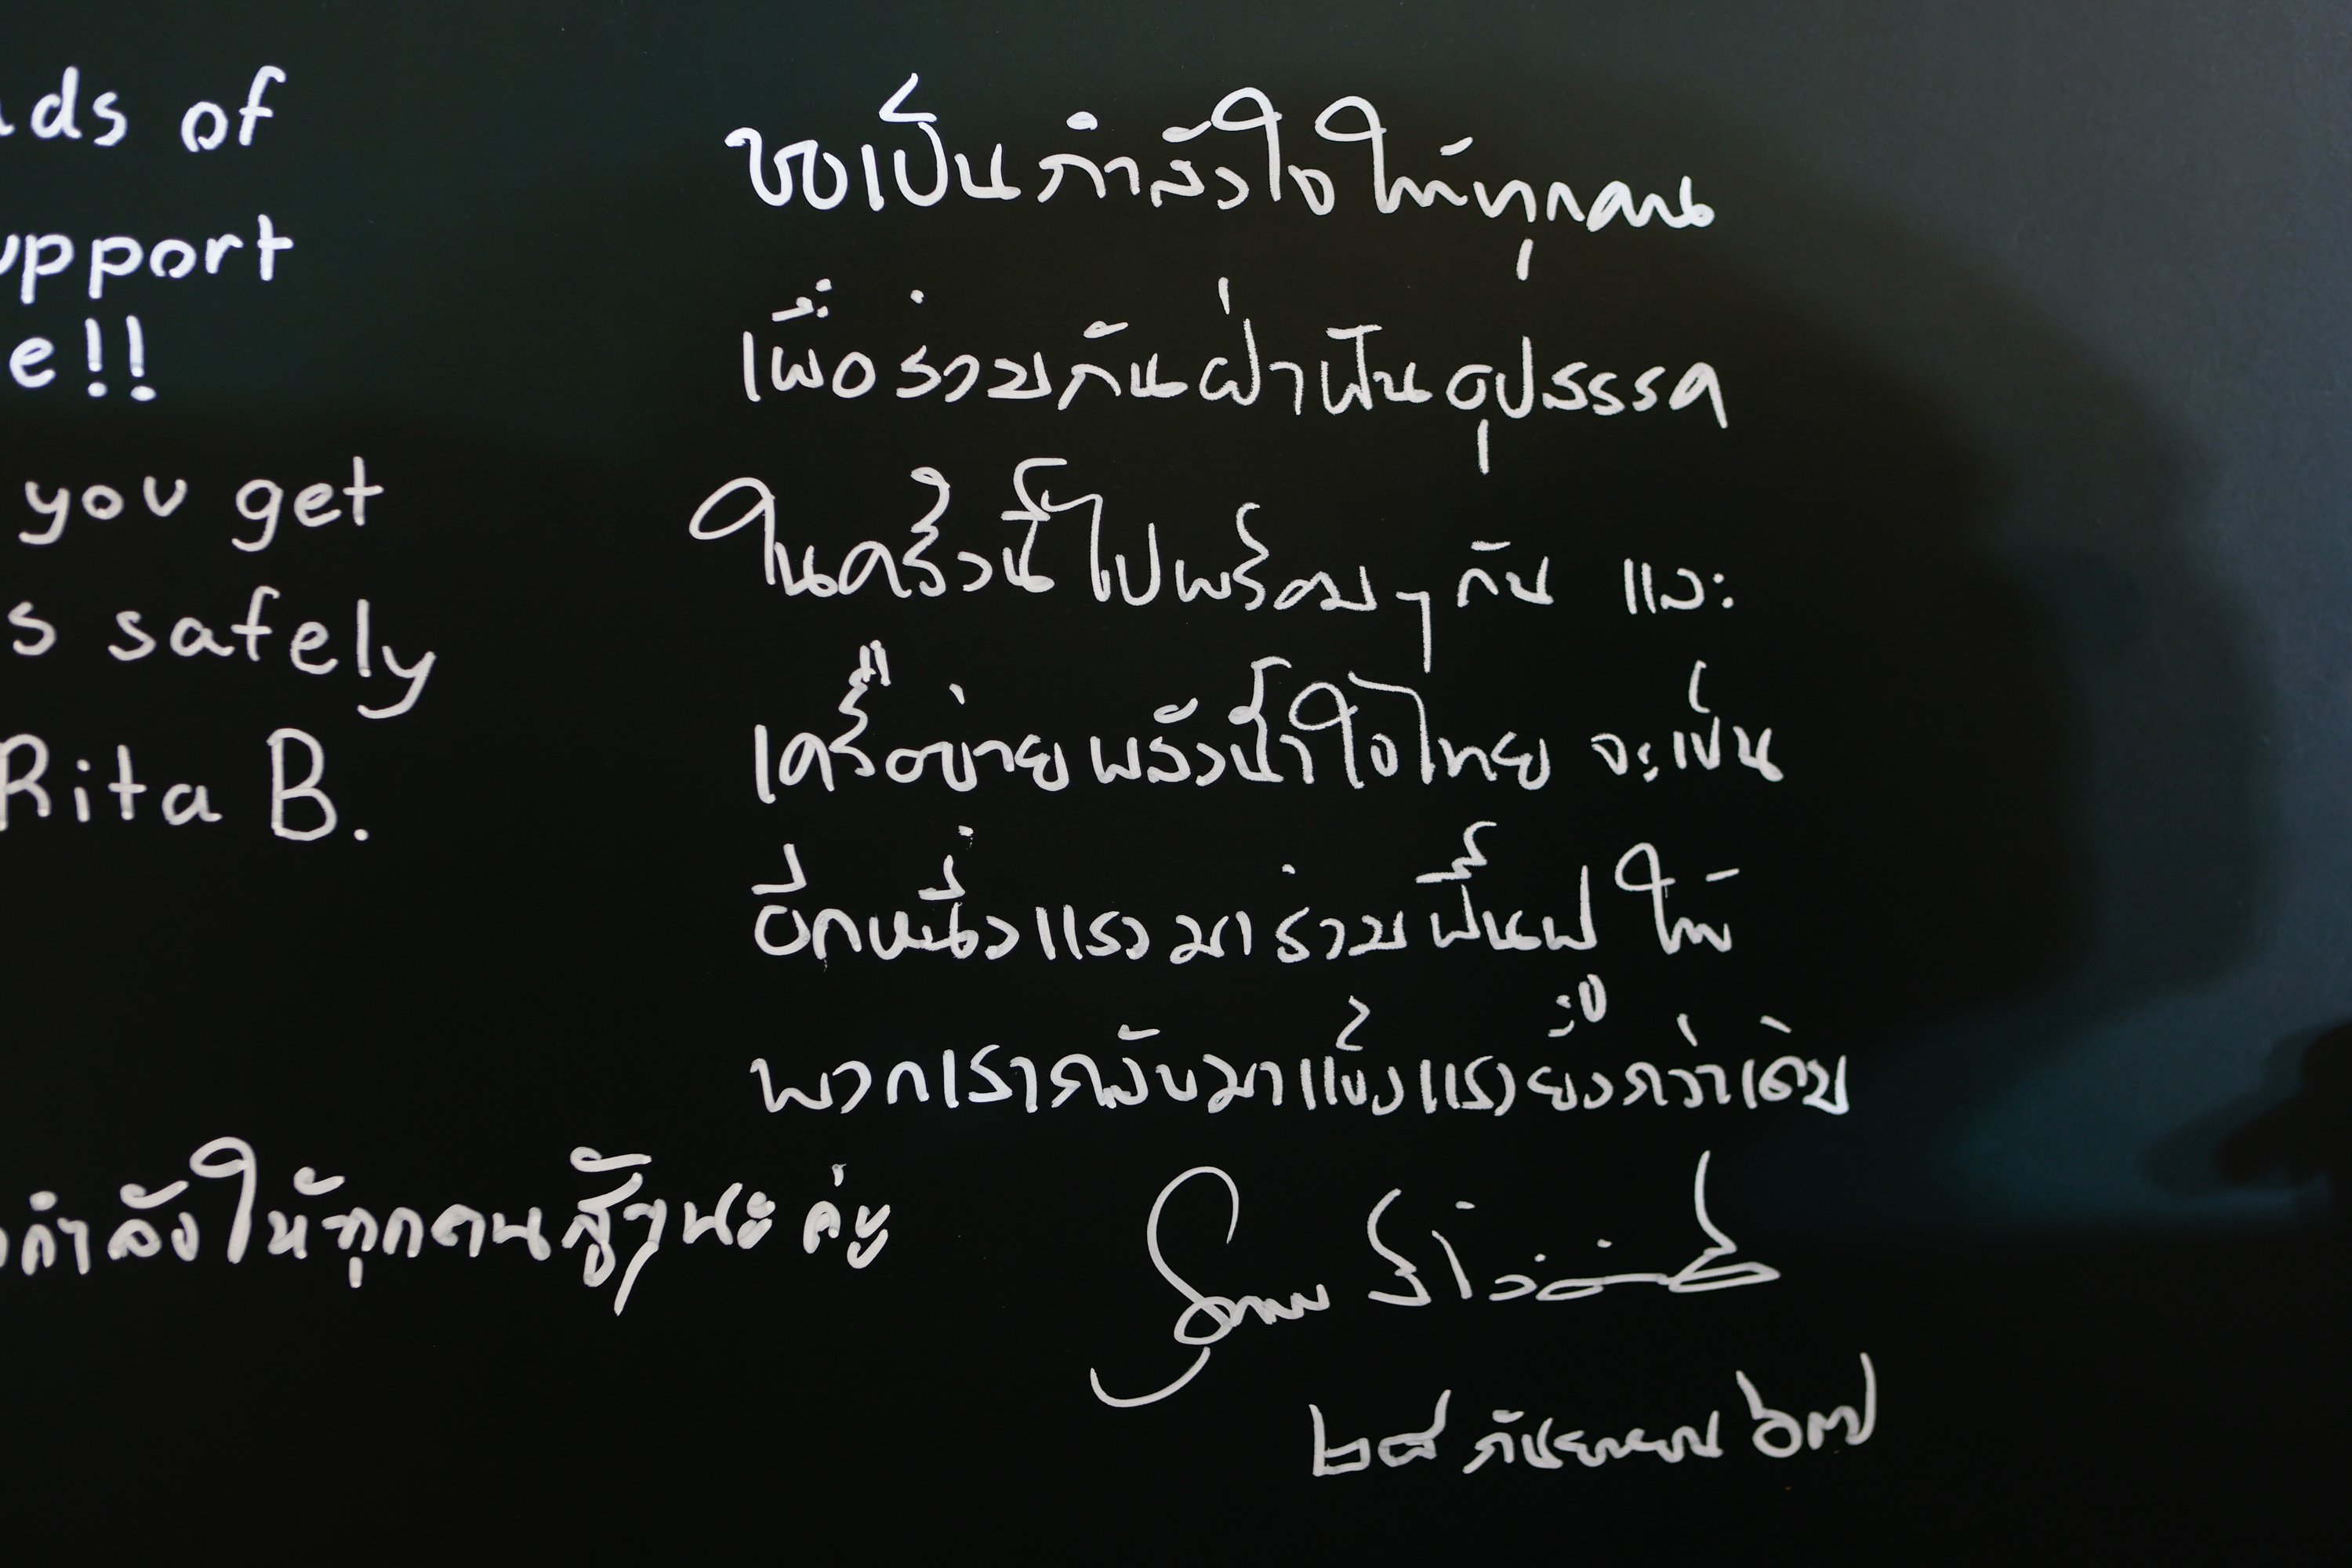 ds of
upport
e!!
you get
s safely
Rita B.
กำลังให้ทุกคนสู้ๆนะคะ
ขอเป็นกำลังใจให้ทุกคน
เพื่อร่วมกันฝ่าฟันอุปสรรค
ในครั้งนี้ไปพร้อมๆกัน และ
เครือข่ายพลังน้ำใจไทย จะเป็น
อีกหนึ่งแรงมาร่วมฟื้นฟู ให้
พวกเรากลับมาแข็งแรงยิ่งกว่าเดิม
๒๘ กันยายน ๖๗